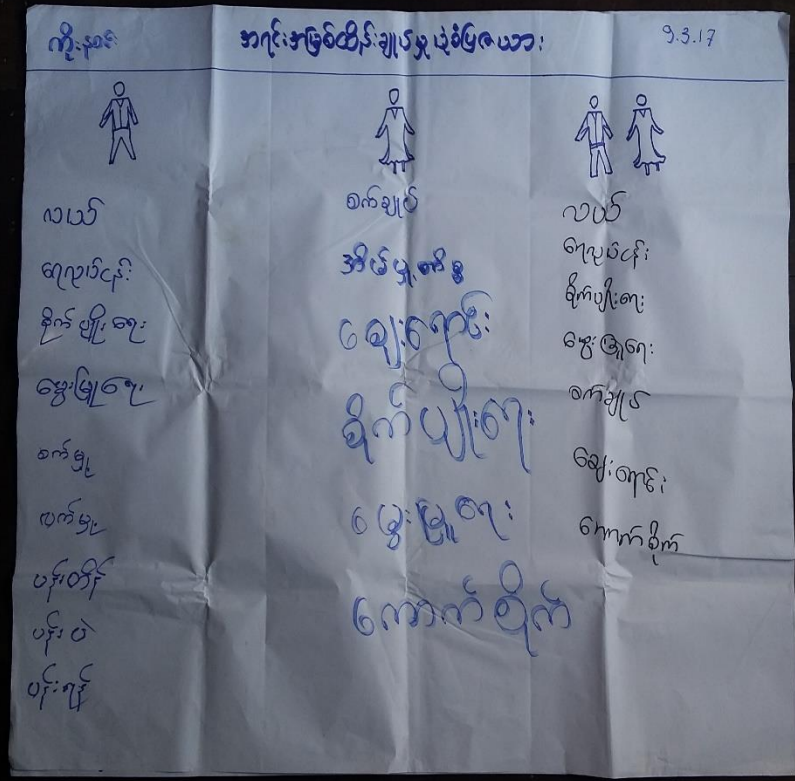 ကိုးနဝင်း အရင်းအမြစ်ထိန်းချုပ်မှုပုံစံပြဇယား 9.3.17
လယ်
ရေလုပ်ငန်း
စိုက်ပျိုးရေး
မွေးမြူရေး
စက်မှု
လက်မှု
ပန်းတိမ်
ပန်းပဲ
ပန်းရန်
စက်ချုပ်
အိမ်မှုကိစ္စ
ဈေးရောင်း
စိုက်ပျိုးရေး
မွေးမြူရေး
ကောက်စိုက်
လယ်
ရေလုပ်ငန်း
စိုက်ပျိုးရေး
မွေးမြူရေး
စက်ချုပ်
ဈေးရောင်း
ကောက်စိုက်